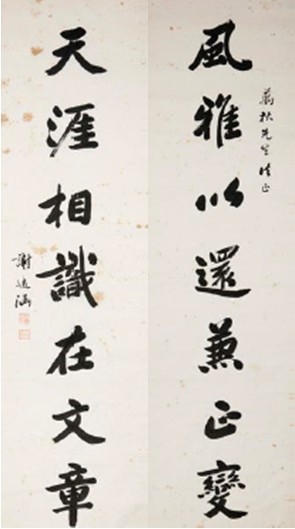 風雅以還兼正變
萬秋先生法正
天涯相識在文章
謝遠涵